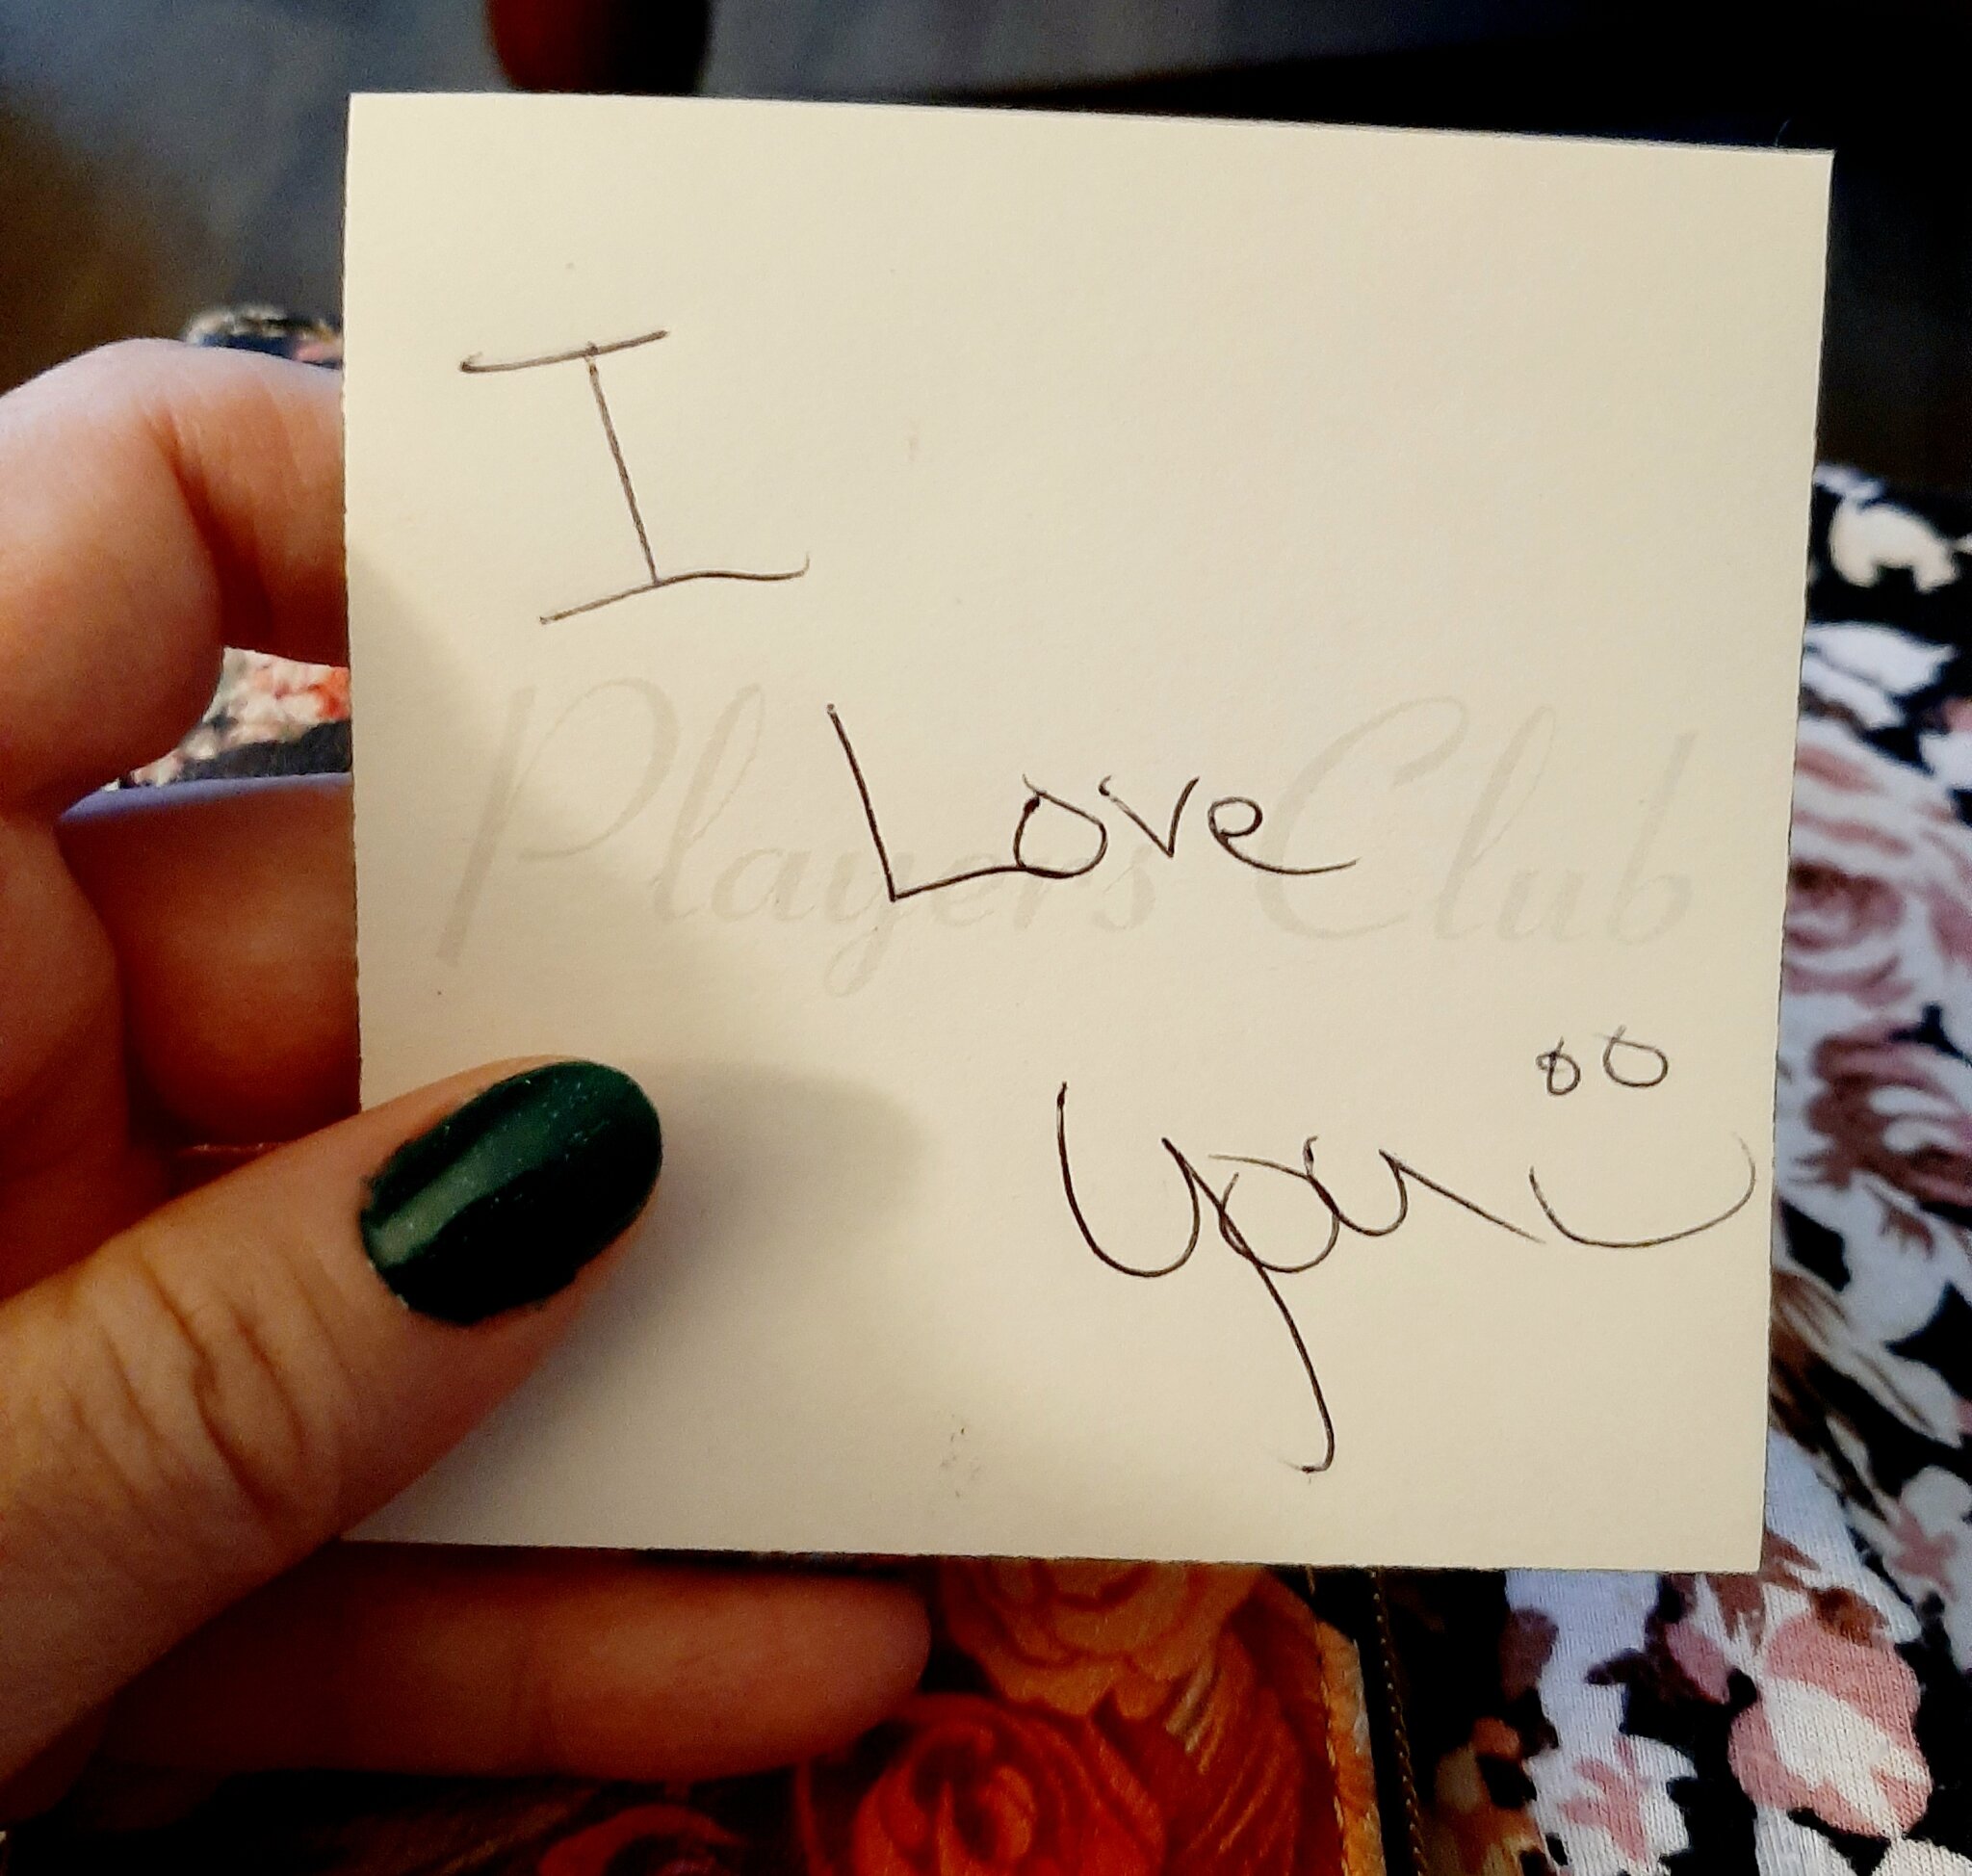 I
Players Club
Love
you